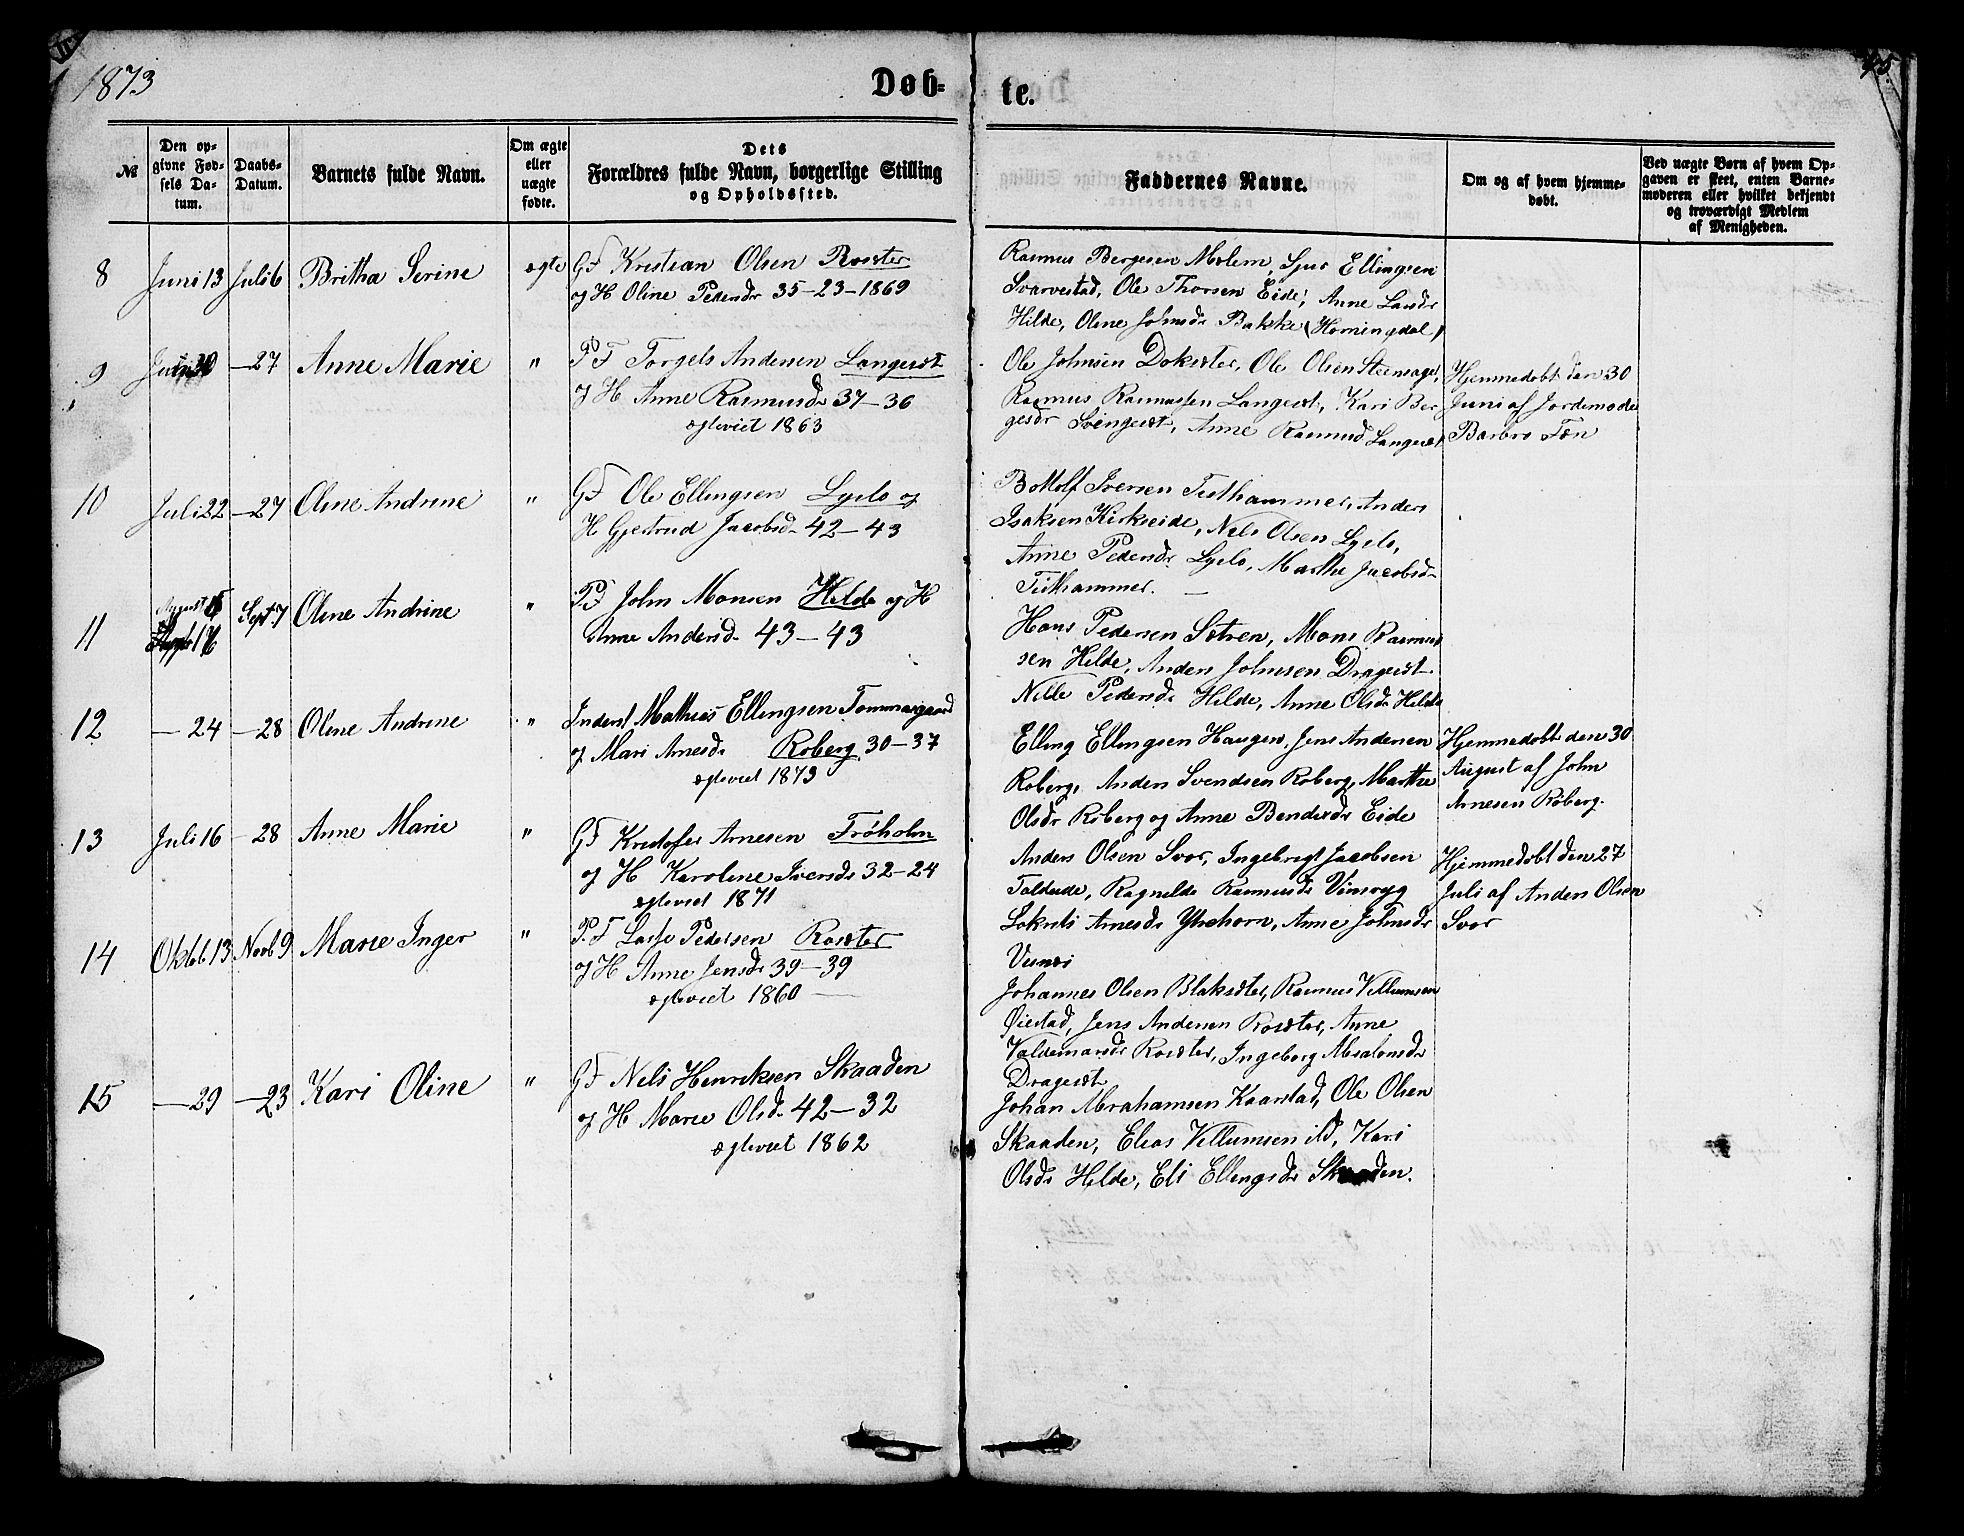 1873
Døb-
te.
45.
№
Den op-
givne Fød-
sels Da-
tum.
Daabs-
Datum.
Barnets fulde Navn.
Om ægte
eller
uægte
fødte.
Dets
Forældres fulde Navn, borgerlige Stilling
og Opholdssted.
Faddernes Navne.
Om og af hvem hjemme-
døbt.
Ved uægte Børn af hvem Op-
gaven er skeet, enten Barne-
moderen eller hvilket bekjendt
og troværdigt Medlem
af Menigheden.
8
Juni 13
Juli 6
Britha Serine
ægte
GF Kristian Olsen Roseter
og H Oline Pedersdr 35-23-1869
Rasmus Bergesen Molem, Sjur Ellingsen
Svarvestad, Ole Thorsen Eide, Anne Larsdr
Hilde, Oline Johnsdr Bakke (Horningdal)
9
-27
Anne Marie
"
PF Torgels Andersen Langesæt
og H Anne Rasmusdr 37-36
ægteviet 1863
Ole Johnsen Dokseter, Ole Olsen Steensager,
Rasmus Rasmussen Langesæt, Kari Ber
gesdr Svingesæt, Anne Rasmusd Langesæt
Hjemmedøbt den 30
Juni af Jordemoder
Barbro Tøn
10
Juli 22
-27
Oline Andrine
"
GF Ole Ellingsen Lyslo og
H Gjertrud Jacobsd. 42-43
Bottolf Iversen Tisthammer, Anders
Isaksen Kirkeeide, Nils Olsen Lyslo,
Anne Pedersdr Lyslo, Marthe Jacobsd.
Tisthammer. —
11
August 15
Sept. 7
Oline Andrine
"
PF John Monsen Hilde og H
Anne Andersd. 43-43
Hans Pedersen Sætren, Mons Rasmus
sen Hilde, Anders Johnsen Dragesæt
Nille Pedersdr Hilde, Anne Olsdr Hilde
12
-24
-28
Oline Andrine
"
Inderst Mathias Ellingsen Tommasgaard
og Mari Arnesdr Roberg 30-37
ægteviet 1873
Elling Ellingsen Haugen, Jens Andersen
Roberg, Anders Svendsen Roberg, Marthe
Olsdr Roberg og Anne Bendixdr Eide
Hjemmedøbt den 30
August af John
Arnesen Roberg.
13
Juli 16
-28
Anne Marie
"
GF Kristofer Arnesen Frøholm
og H Karoline Iversdr 32-24
ægteviet 1871
Anders Olsen Svor, Ingebrigt Jacobsen
Taldeide, Ragnilde Rasmusdr Vinsryg
Arnesdr Ytrehorn, Anne Johnsdr
Hjemmedøbt den 27
Juli af Anders Olsen
Svor
14
Oktob. 13
Novb 9
Marie Inger
"
P.F Lasse Pedersen Roseter
og H Anne Jensdr 39-39
ægteviet 1860 —
Johannes Olsen Blaksæter, Rasmus Villumsen
Øiestad, Jens Andersen Roseter, Anne
Valdemarsdr Roseter, Ingeborg Absalonsdr
Dragesæt
15
-29
-23
Kari Oline
"
GF Nils Henriksen Skaaden
og H Marie Olsd. 42-32
ægteviet 1862
Johan Abrahamsen Kaarstad, Ole Olsen
Skaaden, Elias Villumsen ibd, Kari
Olsdr Hilde, Eli Ellingsdr Skaaden.